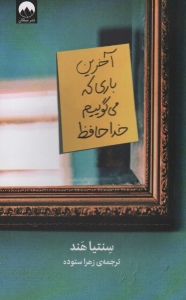 نشر میلکان
آخرین
باری که
می‌گوییم
خداحافظ
سنتیا هَند
ترجمه‌ی زهرا ستوده